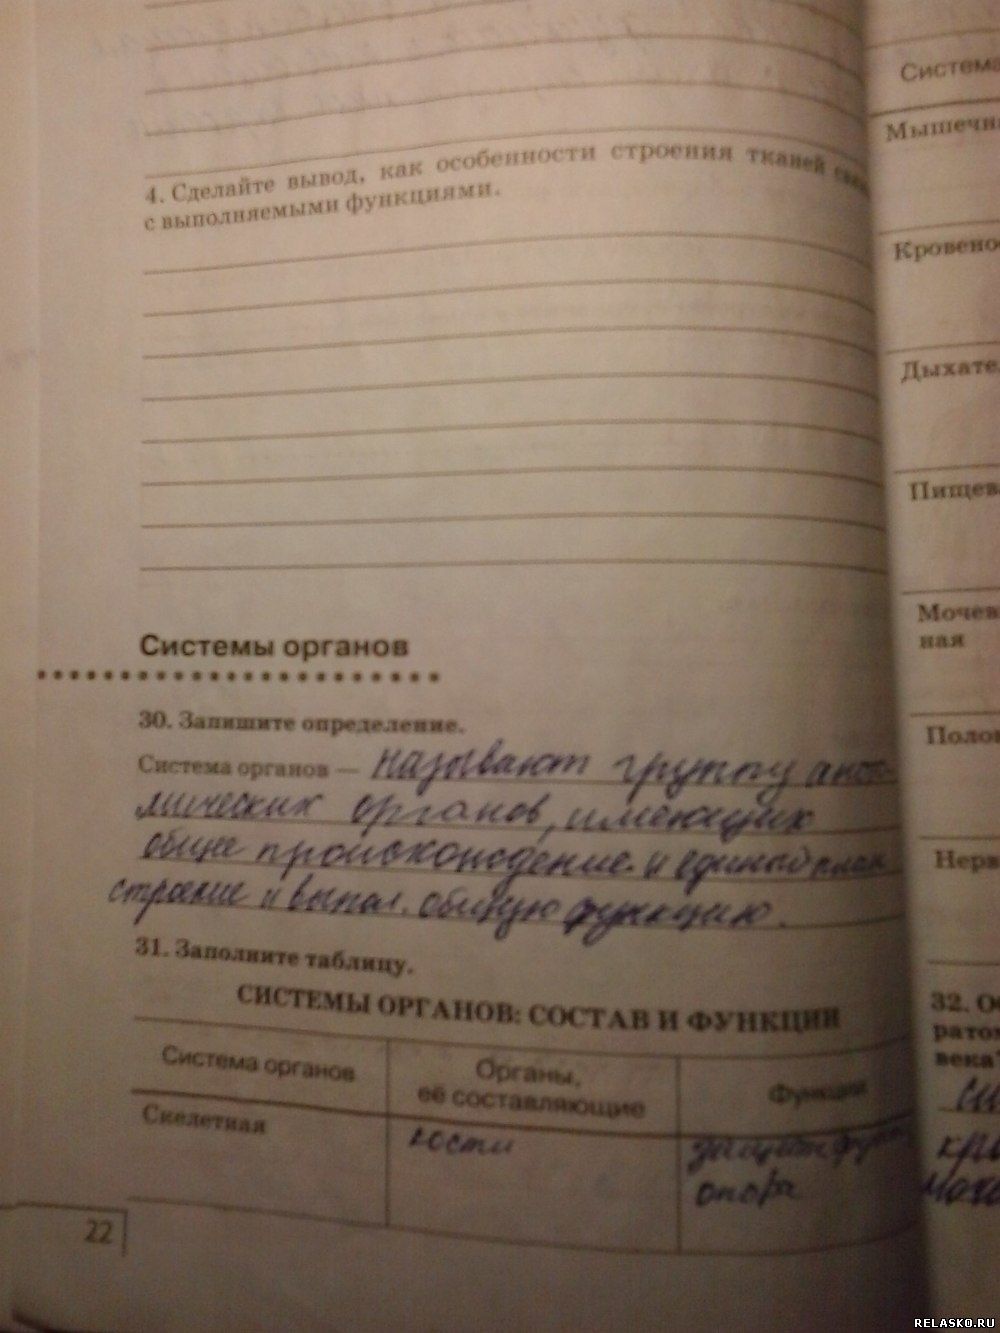 4. Сделайте вывод, как особенности строения тканей
с выполняемыми функциями.
Системы органов
30. Запишите определение.
Система органов — называют группу анато-
мических органов, имеющих
общее происхождение и единый план
строение и выпол. общую функцию.
31. Заполните таблицу.
СИСТЕМЫ ОРГАНОВ: СОСТАВ И ФУНКЦИИ
Система органов
Органы,
её составляющие
Функции
Скелетная
кости
опора
22
Система
Мышечна
Кровено
Дыхате
Пищев
Мочев
ная
Полов
Нерв
32.
рато
века
RELASKO.RU